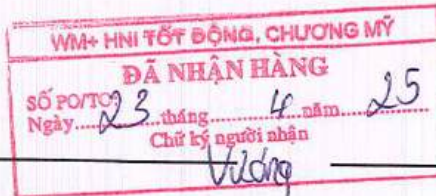 WM+ HNI TỐT ĐỘNG, CHƯƠNG MỸ
ĐÃ NHẬN HÀNG
SỐ PO/TO
Ngày 23 tháng 4 năm 25
Chữ ký người nhận
Vương